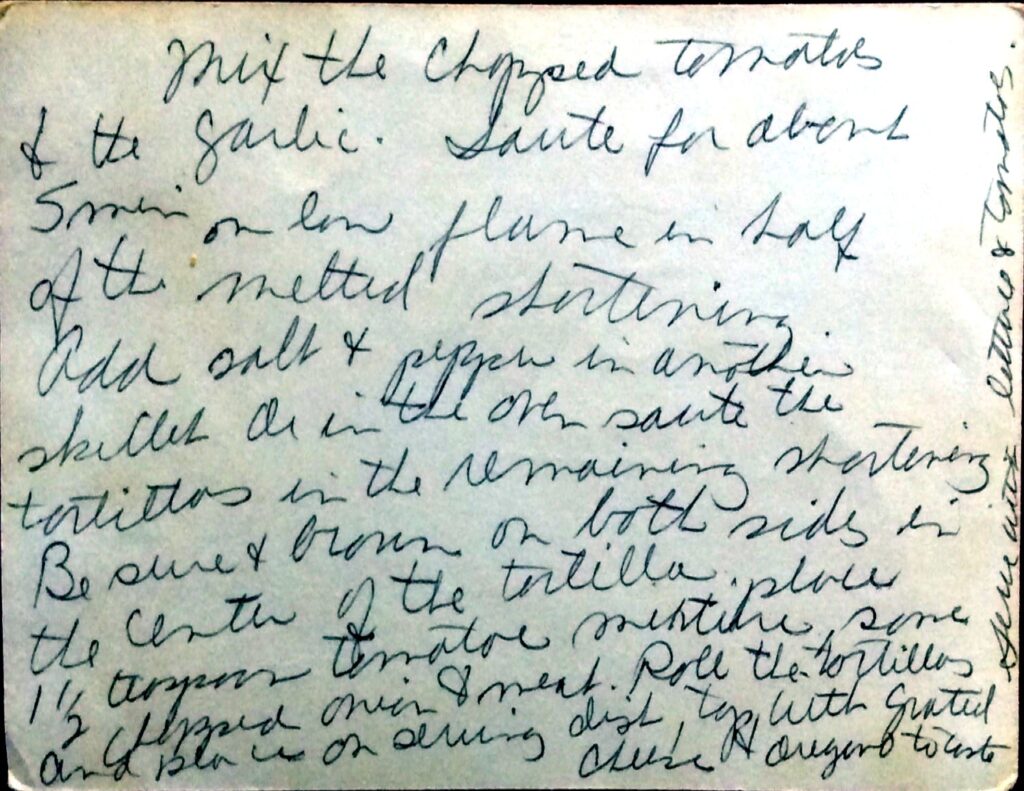 Mix the Chopped tomatoes
& the garlic. Saute for about
5 min on low flame in half
of the melted shortening.
Add salt & pepper in another
skillet or in the oven saute the
tortillas in the remaining shortening
Be sure & brown on both sides in
the center of the tortilla. place
1 1/2 teaspoon tomatoe mixture, some
chopped onion & meat. Roll the tortillas
and place on serving dish, top with grated
cheese & oregano to taste
Serve with lettuce & tomatoes.